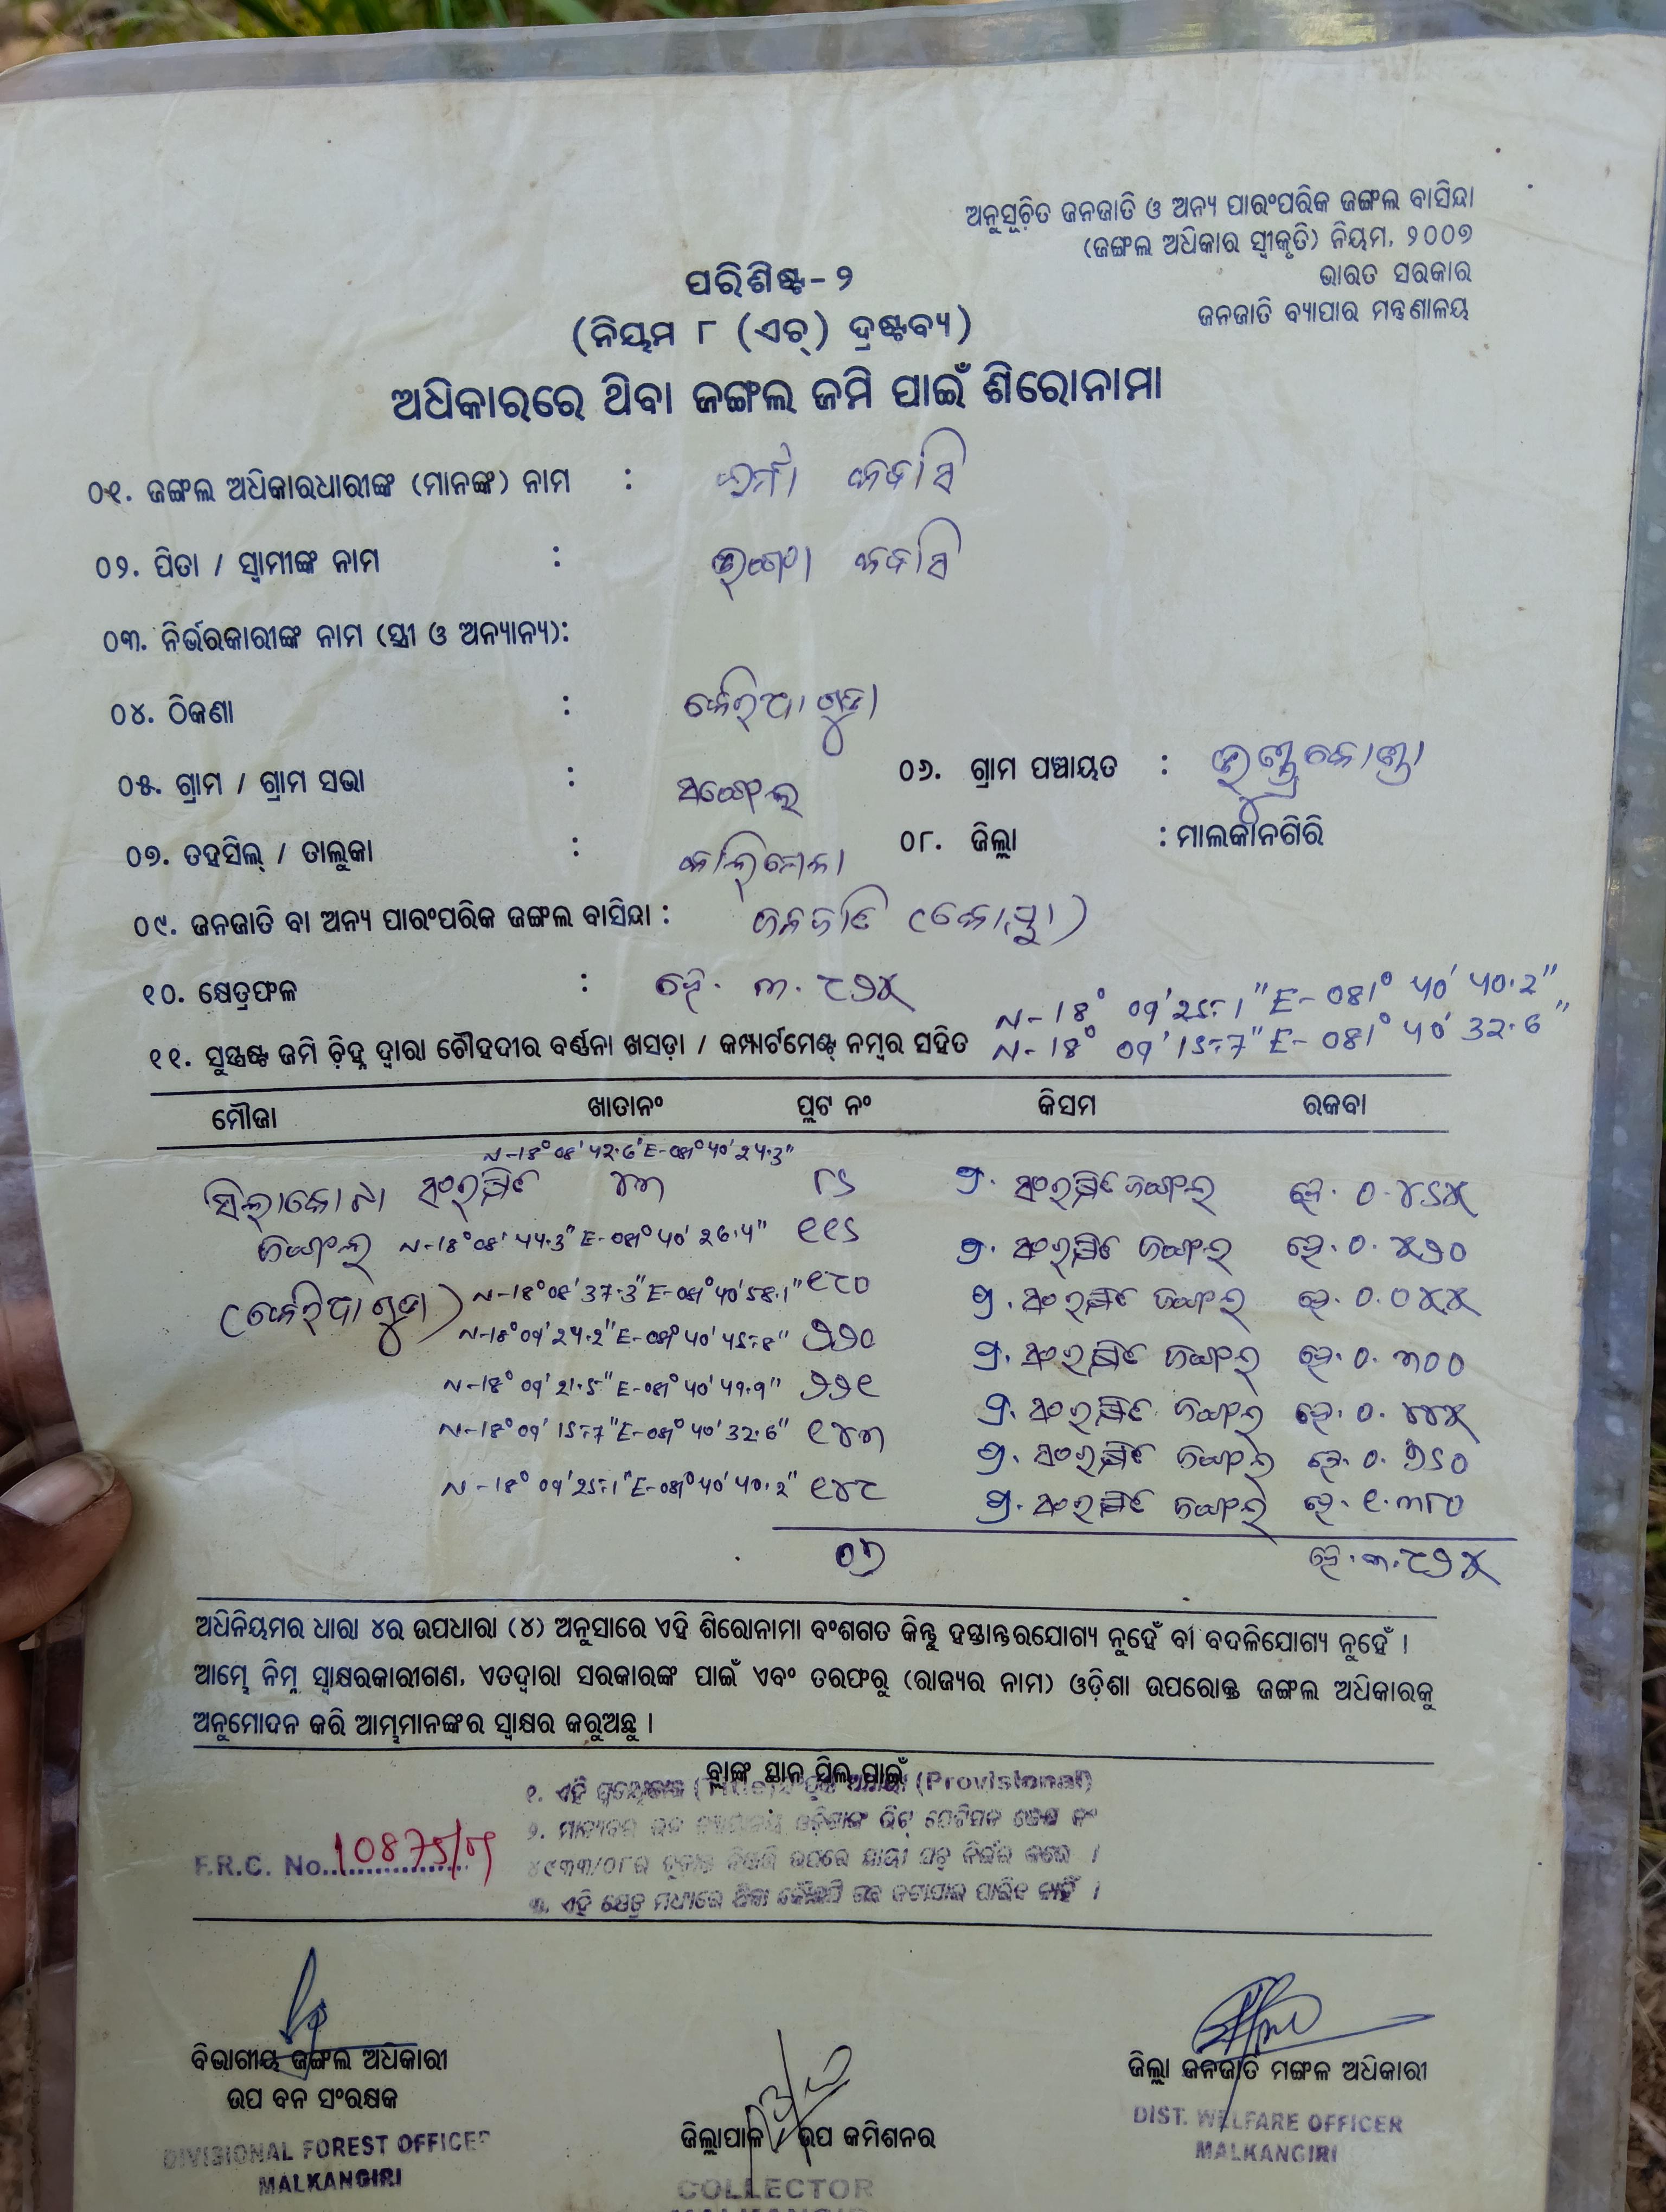 ଅନୁସୂଚିତ ଜନଜାତି ଓ ଅନ୍ୟ ପାରଂପରିକ ଜଙ୍ଗଲ ବାସିନ୍ଦା
(ଜଙ୍ଗଲ ଅଧିକାର ସ୍ୱୀକୃତି) ନିୟମ, ୨୦୦୭
ଭାରତ ସରକାର
ଜନଜାତି ବ୍ୟାପାର ମନ୍ତ୍ରଣାଳୟ
ପରିଶିଷ୍ଟ-୨
(ନିୟମ ୮ (ଏଚ୍) ଦ୍ରଷ୍ଟବ୍ୟ)
ଅଧିକାରରେ ଥିବା ଜଙ୍ଗଲ ଜମି ପାଇଁ ଶିରୋନାମା
୦୧. ଜଙ୍ଗଲ ଅଧିକାରଧାରୀଙ୍କ (ମାନଙ୍କ) ନାମ :
୦୨. ପିତା / ସ୍ୱାମୀଙ୍କ ନାମ :
୦୩. ନିର୍ଭରକାରୀଙ୍କ ନାମ (ସ୍ତ୍ରୀ ଓ ଅନ୍ୟାନ୍ୟ):
୦୪. ଠିକଣା : କେରିଆଗୁଡା
୦୫. ଗ୍ରାମ / ଗ୍ରାମ ସଭା : ୦୬. ଗ୍ରାମ ପଞ୍ଚାୟତ :
୦୭. ତହସିଲ୍ / ତାଲୁକା : କାଲିମେଳା ୦୮. ଜିଲ୍ଲା : ମାଲକାନଗିରି
୦୯. ଜନଜାତି ବା ଅନ୍ୟ ପାରଂପରିକ ଜଙ୍ଗଲ ବାସିନ୍ଦା : ଜନଜାତି (କୋୟା)
୧୦. କ୍ଷେତ୍ରଫଳ : ହେ. ୩.୯୭୪ N-18° 09' 25.1" E-081° 40' 40.2"
୧୧. ସୁସ୍ପଷ୍ଟ ଜମି ଚିହ୍ନ ଦ୍ୱାରା ଚୌହଦୀର ବର୍ଣ୍ଣନା ଖସଡ଼ା / କମ୍ପାର୍ଟମେଣ୍ଟ୍ ନମ୍ବର ସହିତ N-18° 09' 15.7" E-081° 40' 32.6"
ମୌଜା ଖାତାନଂ ପ୍ଲଟ ନଂ କିସମ ରକବା
N-18°08'42.6"E-081°40'24.3"
ସଂରକ୍ଷିତ ୪୩ ୮୫ ପ୍ର. ସଂରକ୍ଷିତ ଜଙ୍ଗଲ ହେ.
ଜଙ୍ଗଲ N-18°08'44.3"E-081°40'26.4" ୧୧୫ ପ୍ର. ସଂରକ୍ଷିତ ଜଙ୍ଗଲ ହେ.
(କେରିଆଗୁଡା) N-18°08'37.3"E-081°40'58.1" ୧୯୦ ପ୍ର. ସଂରକ୍ଷିତ ଜଙ୍ଗଲ ହେ.
N-18°09'24.2"E-081°40'45.8" ୨୨୦ ପ୍ର. ସଂରକ୍ଷିତ ଜଙ୍ଗଲ ହେ. ୦.୩୦୦
N-18°09'21.5"E-081°40'49.9" ୨୨୧ ପ୍ର. ସଂରକ୍ଷିତ ଜଙ୍ଗଲ ହେ.
N-18°09'15.7"E-081°40'32.6" ୧୪୩ ପ୍ର. ସଂରକ୍ଷିତ ଜଙ୍ଗଲ ହେ.
N-18°09'25.1"E-081°40'40.2" ୧୪୯ ପ୍ର. ସଂରକ୍ଷିତ ଜଙ୍ଗଲ ହେ. ୧.୩୮୦
୦୭ ହେ.୩.୯୭୪
ଅଧିନିୟମର ଧାରା ୪ର ଉପଧାରା (୪) ଅନୁସାରେ ଏହି ଶିରୋନାମା ବଂଶଗତ କିନ୍ତୁ ହସ୍ତାନ୍ତରଯୋଗ୍ୟ ନୁହେଁ ବା ବଦଳିଯୋଗ୍ୟ ନୁହେଁ ।
ଆମ୍ଭେ ନିମ୍ନ ସ୍ୱାକ୍ଷରକାରୀଗଣ, ଏତଦ୍ୱାରା ସରକାରଙ୍କ ପାଇଁ ଏବଂ ତରଫରୁ (ରାଜ୍ୟର ନାମ) ଓଡ଼ିଶା ଉପରୋକ୍ତ ଜଙ୍ଗଲ ଅଧିକାରକୁ
ଅନୁମୋଦନ କରି ଆମ୍ଭମାନଙ୍କର ସ୍ୱାକ୍ଷର କରୁଅଛୁ ।
ବ୍ଲାଙ୍କ ସ୍ଥାନ ସିଲ ପାଇଁ
୧. ଏହି (Title) (Provisional)
୨. ରିଟ୍ ପିଟିସନ କେଶ ନଂ
F.R.C. No. 10875/09 ୪୯୩୩/୦୮ର ଉପରେ ନିର୍ଭର କରେ ।
୩. ଏହି କ୍ଷେତ୍ର ମଧ୍ୟରେ ଥିବା କୌଣସି ଗଛ କଟାଯାଇ ପାରିବ ନାହିଁ ।
ବିଭାଗୀୟ ଜଙ୍ଗଲ ଅଧିକାରୀ
ଉପ ବନ ସଂରକ୍ଷକ
DIVISIONAL FOREST OFFICER
MALKANGIRI
ଜିଲ୍ଲାପାଳ / ଉପ କମିଶନର
COLLECTOR
ଜିଲ୍ଲା ଜନଜାତି ମଙ୍ଗଳ ଅଧିକାରୀ
DIST. WELFARE OFFICER
MALKANGIRI